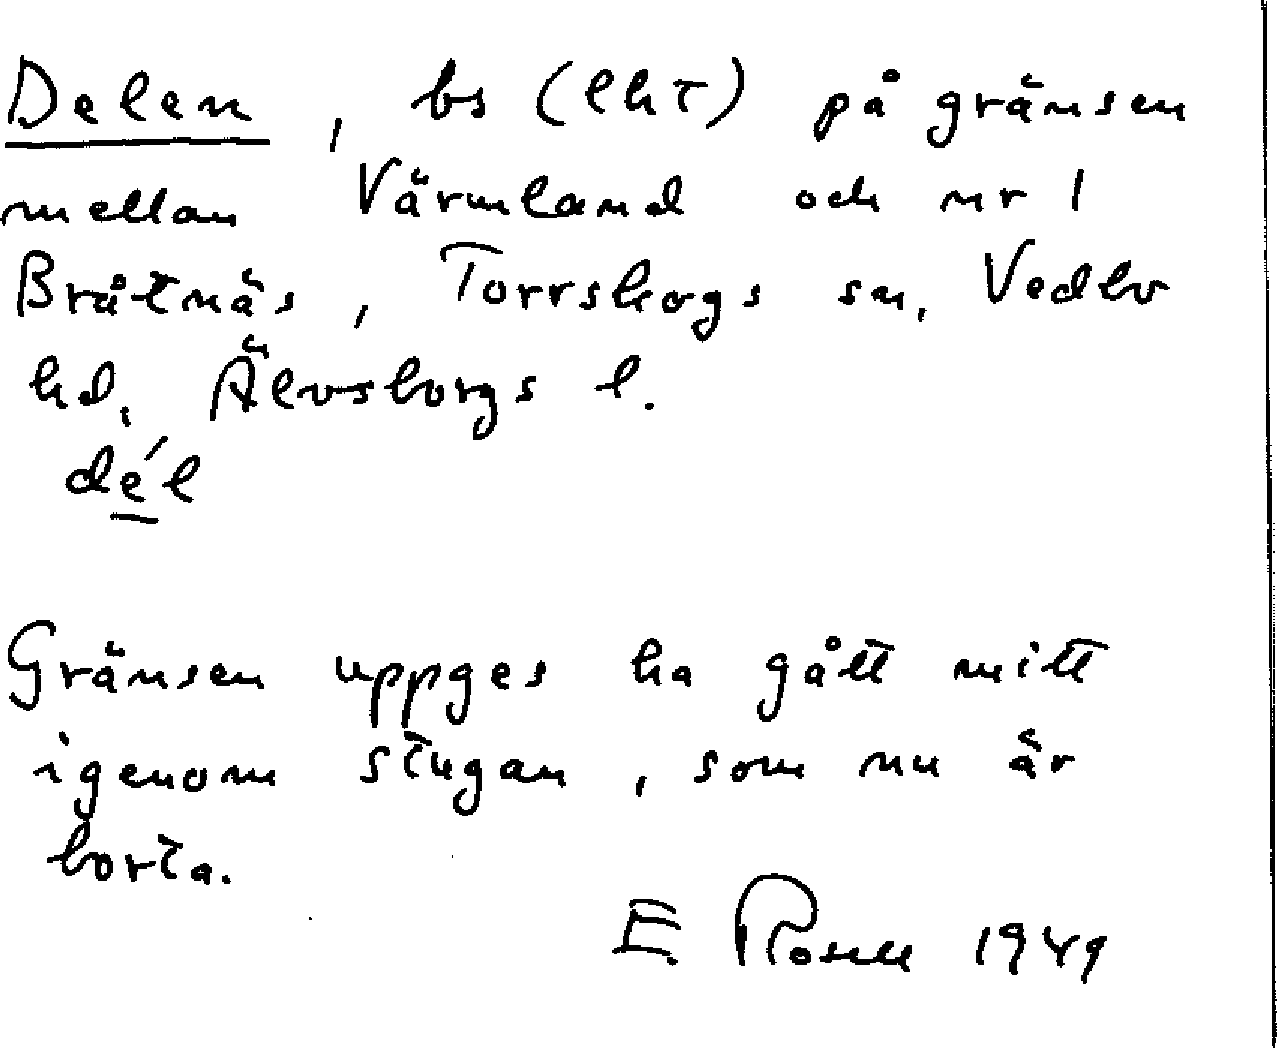 Delen, bs (lht) på gränsen
mellan Värmland och nr 1
Bråtnäs, Torrskogs sn, Vedbo
hd, Älvsborgs l.
dél
Gränsen uppges ha gått mitt
igenom stugan, som nu är
borta.
E. Rosell 1949